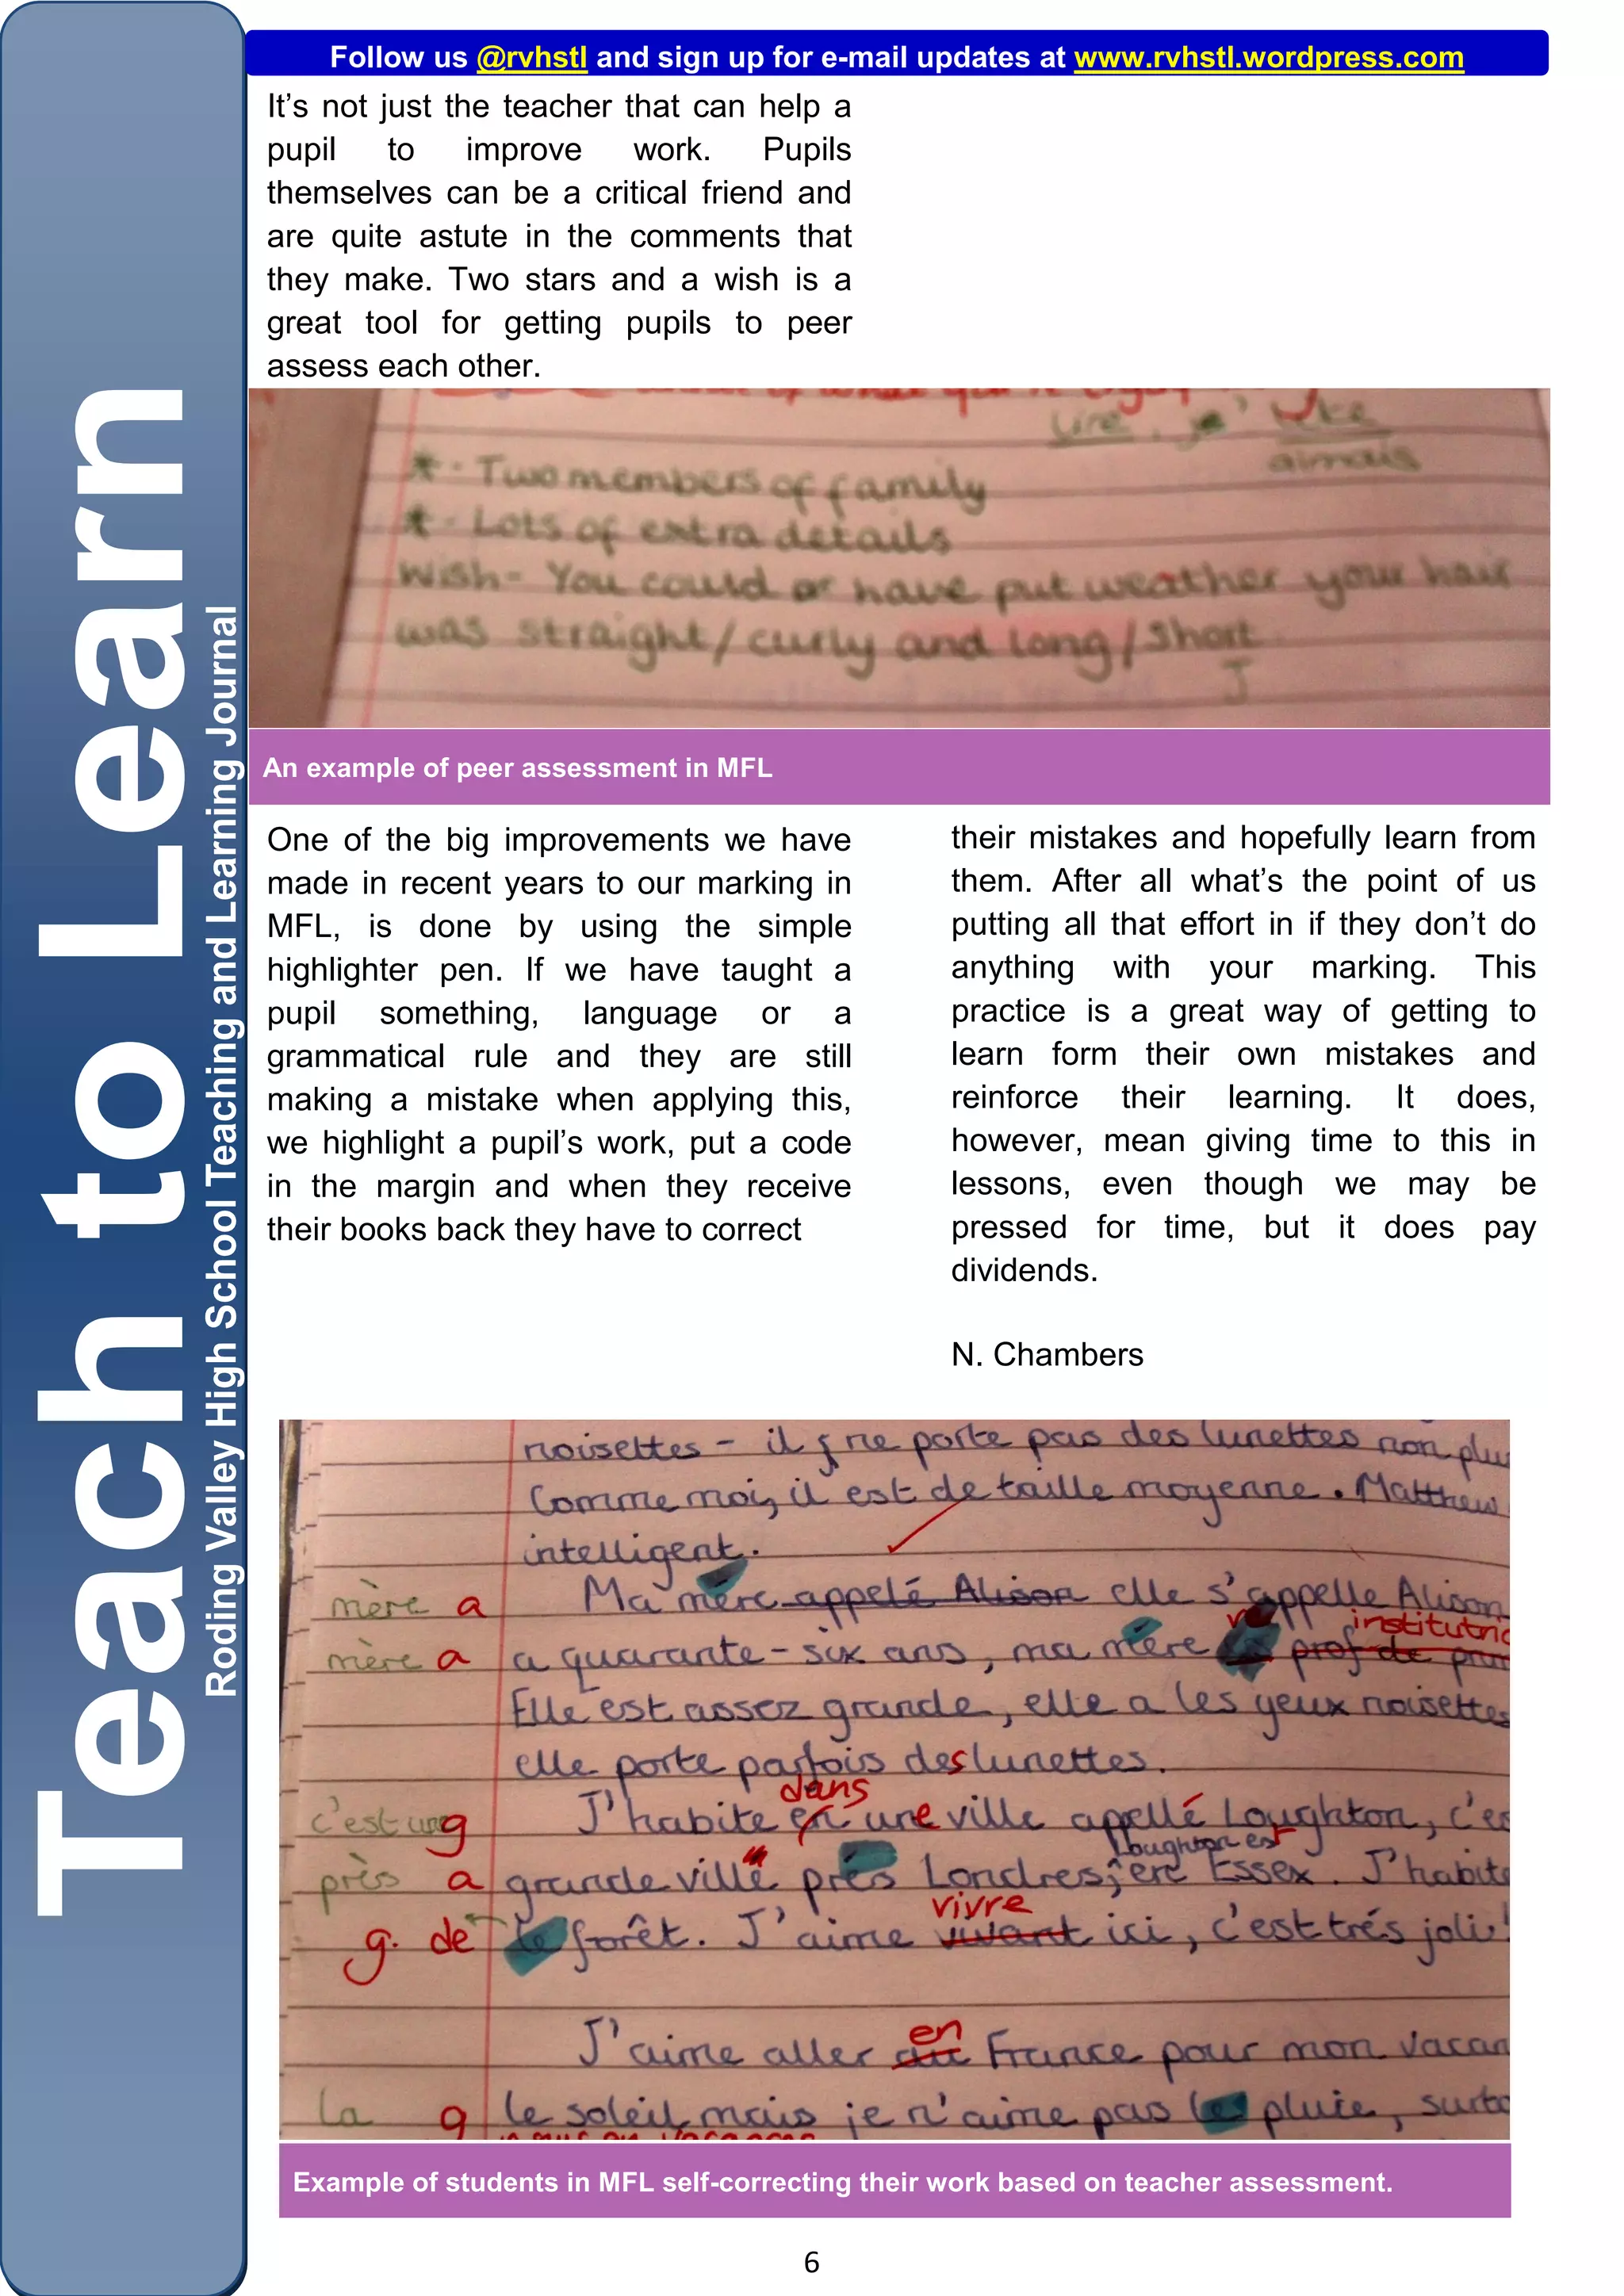 Follow us @rvhstl and sign up for e-mail updates at www.rvhstl.wordpress.com
Teach to Learn
Roding Valley High School Teaching and Learning Journal
It’s not just the teacher that can help a
pupil to improve work. Pupils
themselves can be a critical friend and
are quite astute in the comments that
they make. Two stars and a wish is a
great tool for getting pupils to peer
assess each other.
lire, je like
aimais
* - Two members of family
* - Lots of extra details
Wish - You could or have put weather your hair
was straight/curly and long/short
J
An example of peer assessment in MFL
One of the big improvements we have
made in recent years to our marking in
MFL, is done by using the simple
highlighter pen. If we have taught a
pupil something, language or a
grammatical rule and they are still
making a mistake when applying this,
we highlight a pupil’s work, put a code
in the margin and when they receive
their books back they have to correct
their mistakes and hopefully learn from
them. After all what’s the point of us
putting all that effort in if they don’t do
anything with your marking. This
practice is a great way of getting to
learn form their own mistakes and
reinforce their learning. It does,
however, mean giving time to this in
lessons, even though we may be
pressed for time, but it does pay
dividends.
N. Chambers
noisettes - il ne porte pas des lunettes non plu
Comme moi, il est de taille moyenne. Matthew
intelligent.
mère a Ma mère appelé Alison elle s'appelle Alison
mère a a quarante-six ans, ma mère prof de
institutric
Elle est assez grande, elle a les yeux noisettes
elle porte parfois des lunettes.
dans
c'est une g J'habite en une ville appellé Loughton, c'es
Loughton est
près a grande ville près Londres, en Essex. J'habite
vivre
g. de le forêt. J'aime vivant ici, c'est trés joli!
en
J'aime aller au France pour mon vacan
la g le soleil mais je n'aime pas le pluie, surto
Example of students in MFL self-correcting their work based on teacher assessment.
6